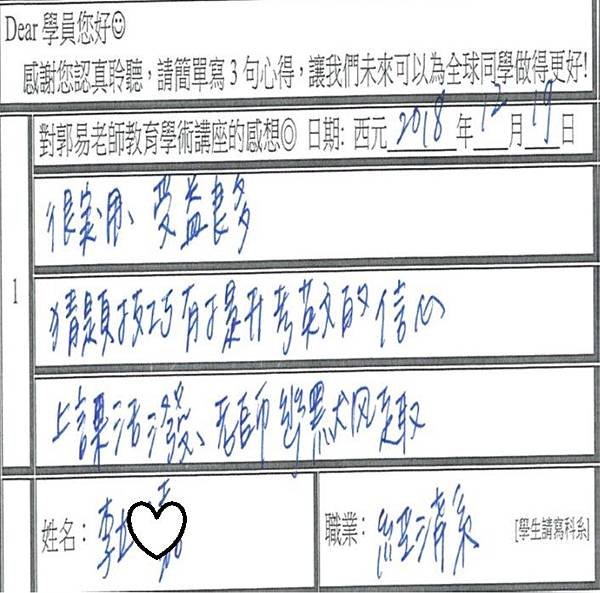 Dear 學員您好☺
感謝您認真聆聽，請簡單寫 3 句心得，讓我們未來可以為全球同學做得更好!
對郭易老師教育學術講座的感想◎ 日期: 西元 2018 年 12 月 19 日
1
很實用、受益良多
猜題技巧有提升考英文的信心
上課活潑、老師幽默风趣
姓名：
職業: 經濟系 [學生請寫科系]